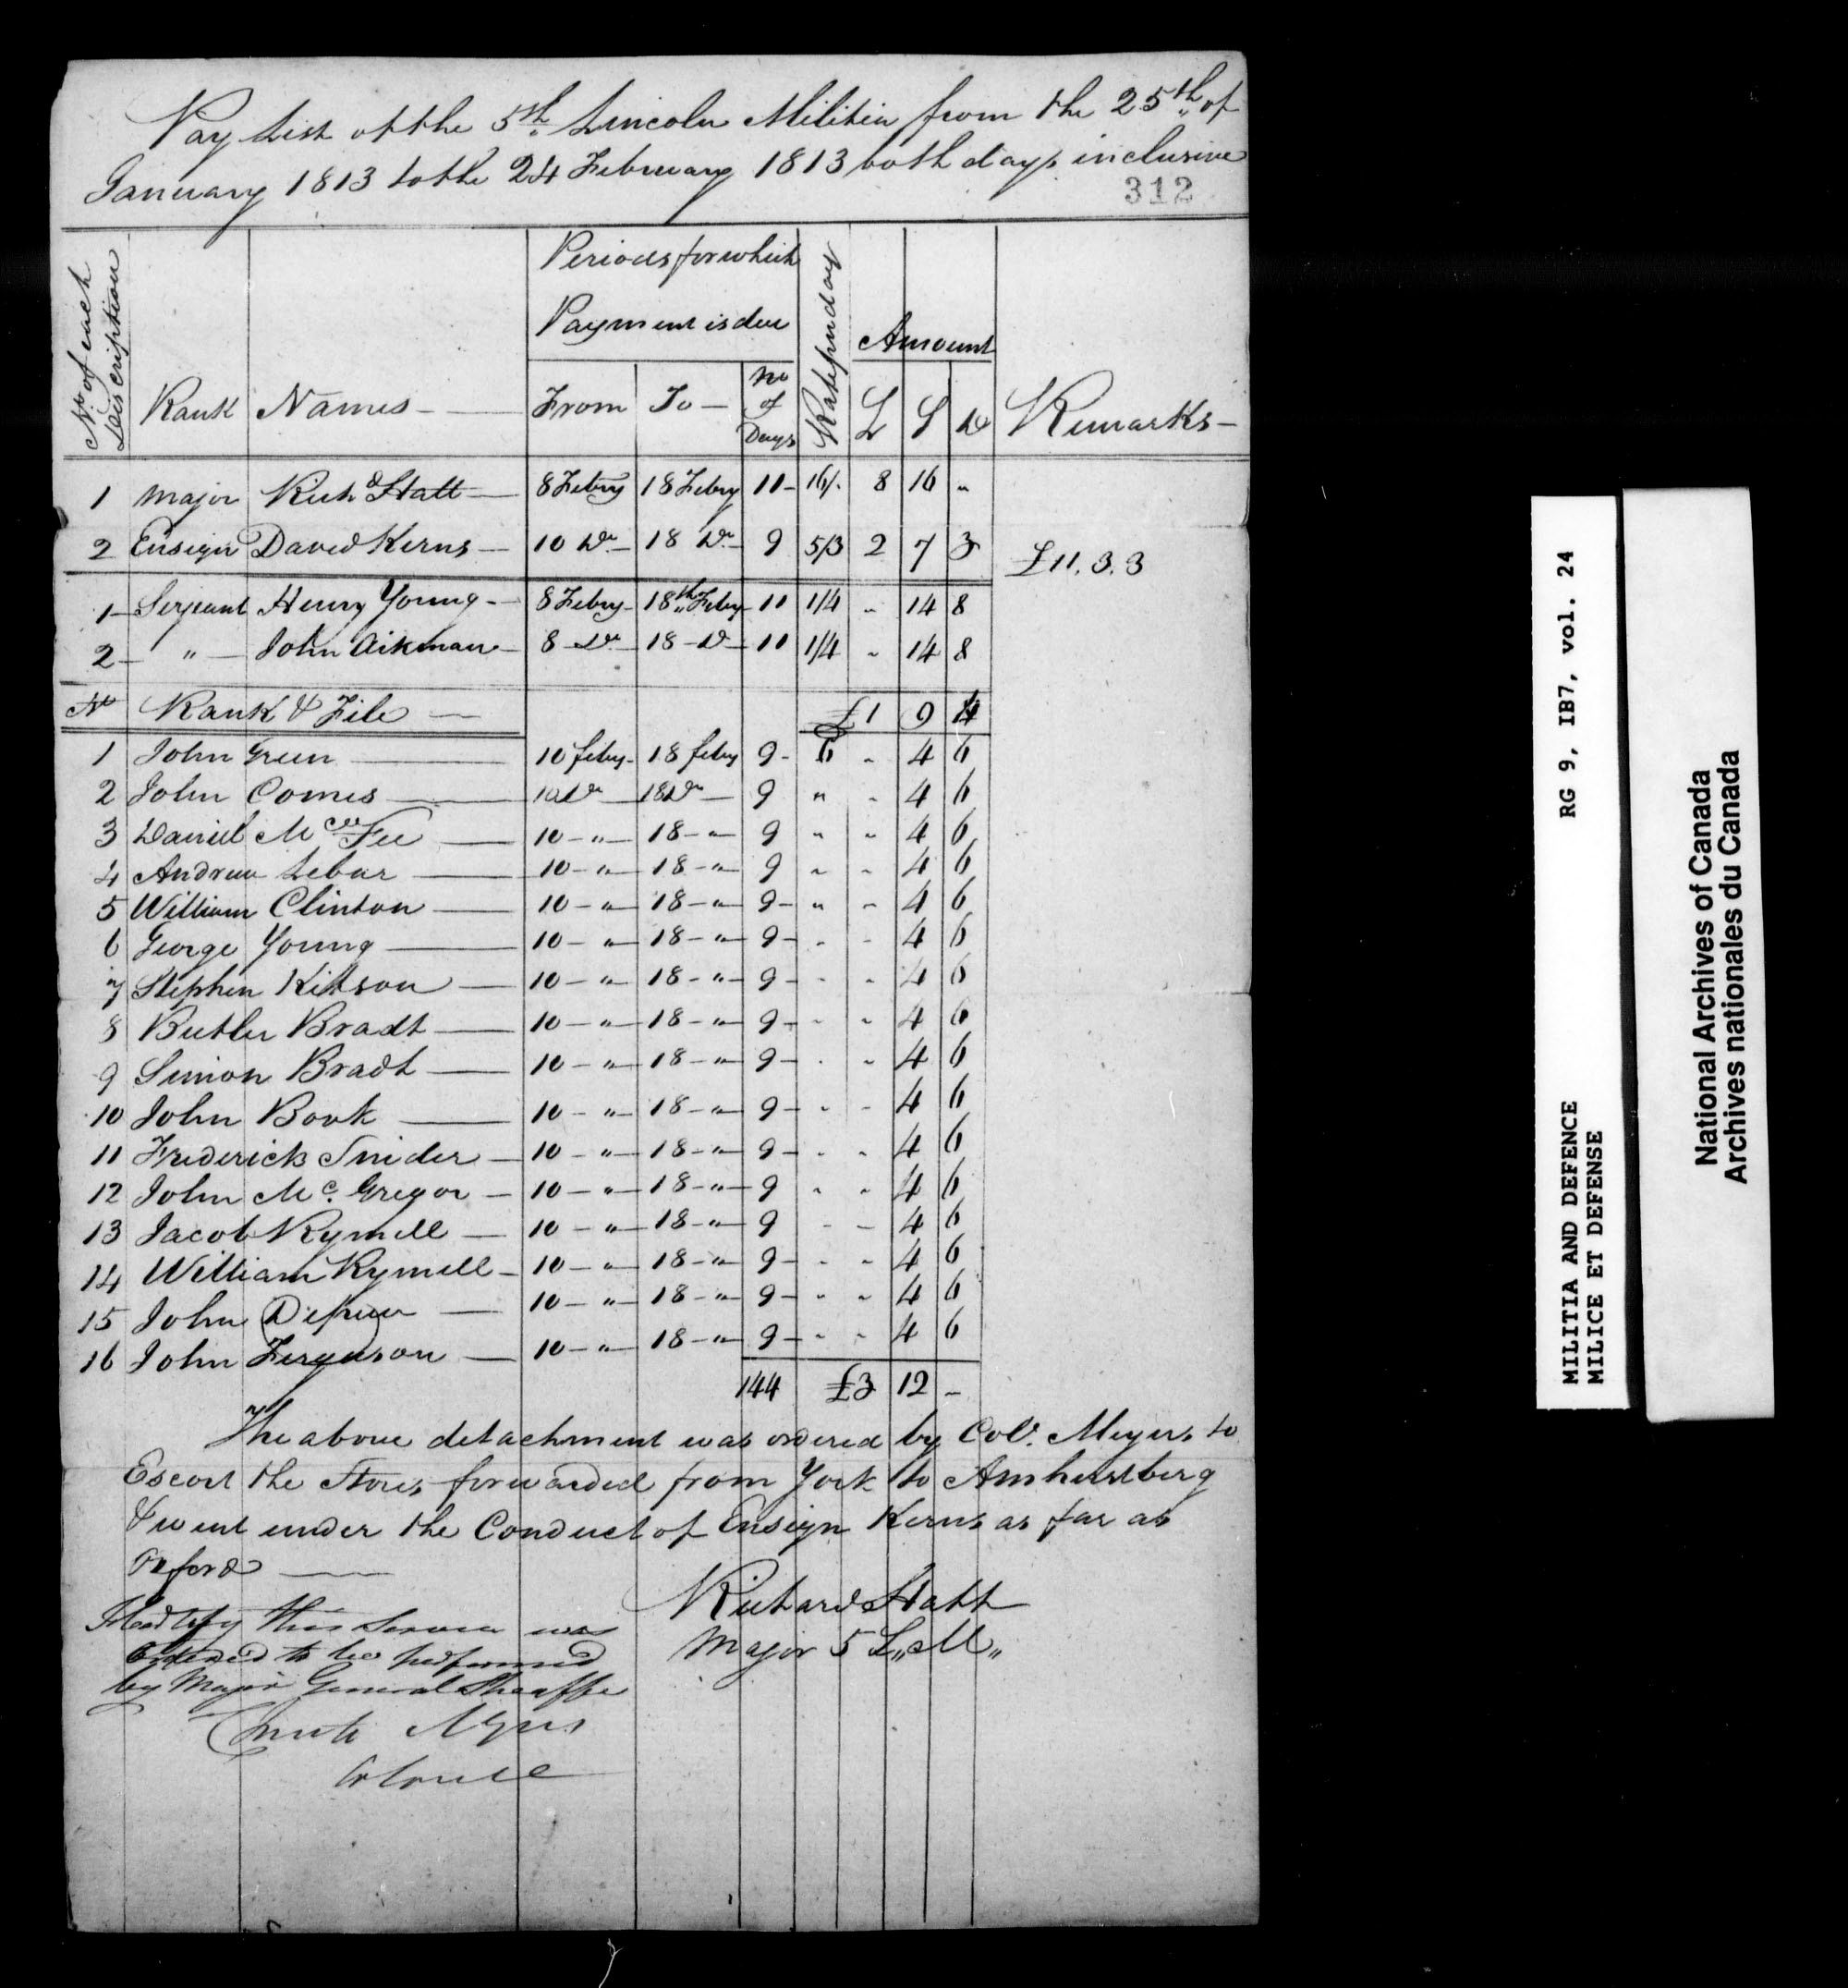 Pay List of the 5th Lincoln Militia from the 25th of
January 1813 to the 24 February 1813 both days inclusive
312
No of each Description
Rank
Names
Periods for which Payment is due
From
To
No of Days
Rate per day
Amount
£ S D
Remarks
1 Major Richd Hatt 8 Febry 18 Febry 11 16/. 8 16 "
2 Ensign David Kerns 10 Do 18 Do 9 5/3 2 7 3 £11.3.3
1 Serjeant Henry Young 8 Febry 18th Febry 11 1/4 " 14 8
2 " John Aikman 8 Do 18 Do 11 1/4 " 14 8
No Rank & File £1 9 4
1 John Green 10 febry 18 febry 9 6 " 4 6
2 John Comes 10 Do 18 Do 9 " " 4 6
3 Daniel Mc Fee 10 " 18 " 9 " " 4 6
4 Andrew Lebar 10 " 18 " 9 " " 4 6
5 William Clinton 10 " 18 " 9 " " 4 6
6 George Young 10 " 18 " 9 " " 4 6
7 Stephen Kitson 10 " 18 " 9 " " 4 6
8 Butler Bradt 10 " 18 " 9 " " 4 6
9 Simon Bradt 10 " 18 " 9 " " 4 6
10 John Book 10 " 18 " 9 " " 4 6
11 Frederick Snider 10 " 18 " 9 " " 4 6
12 John Mc Gregor 10 " 18 " 9 " " 4 6
13 Jacob Rymell 10 " 18 " 9 " " 4 6
14 William Rymell 10 " 18 " 9 " " 4 6
15 John Depuw 10 " 18 " 9 " " 4 6
16 John Ferguson 10 " 18 " 9 " " 4 6
144 £3 12 -
The above detachment was ordered by Col. Meyers to
Escort the Stores forwarded from York to Amherstberg
& went under the Conduct of Ensign Kerns as far as
Oxford
Richard Hatt
Major 5 L,, M,,
I Certify this Service was
Ordered to be performed
by Major General Sheaffe
Myers
Colonel
MILITIA AND DEFENCE RG 9, IB7, vol. 24
MILICE ET DEFENSE
National Archives of Canada
Archives nationales du Canada